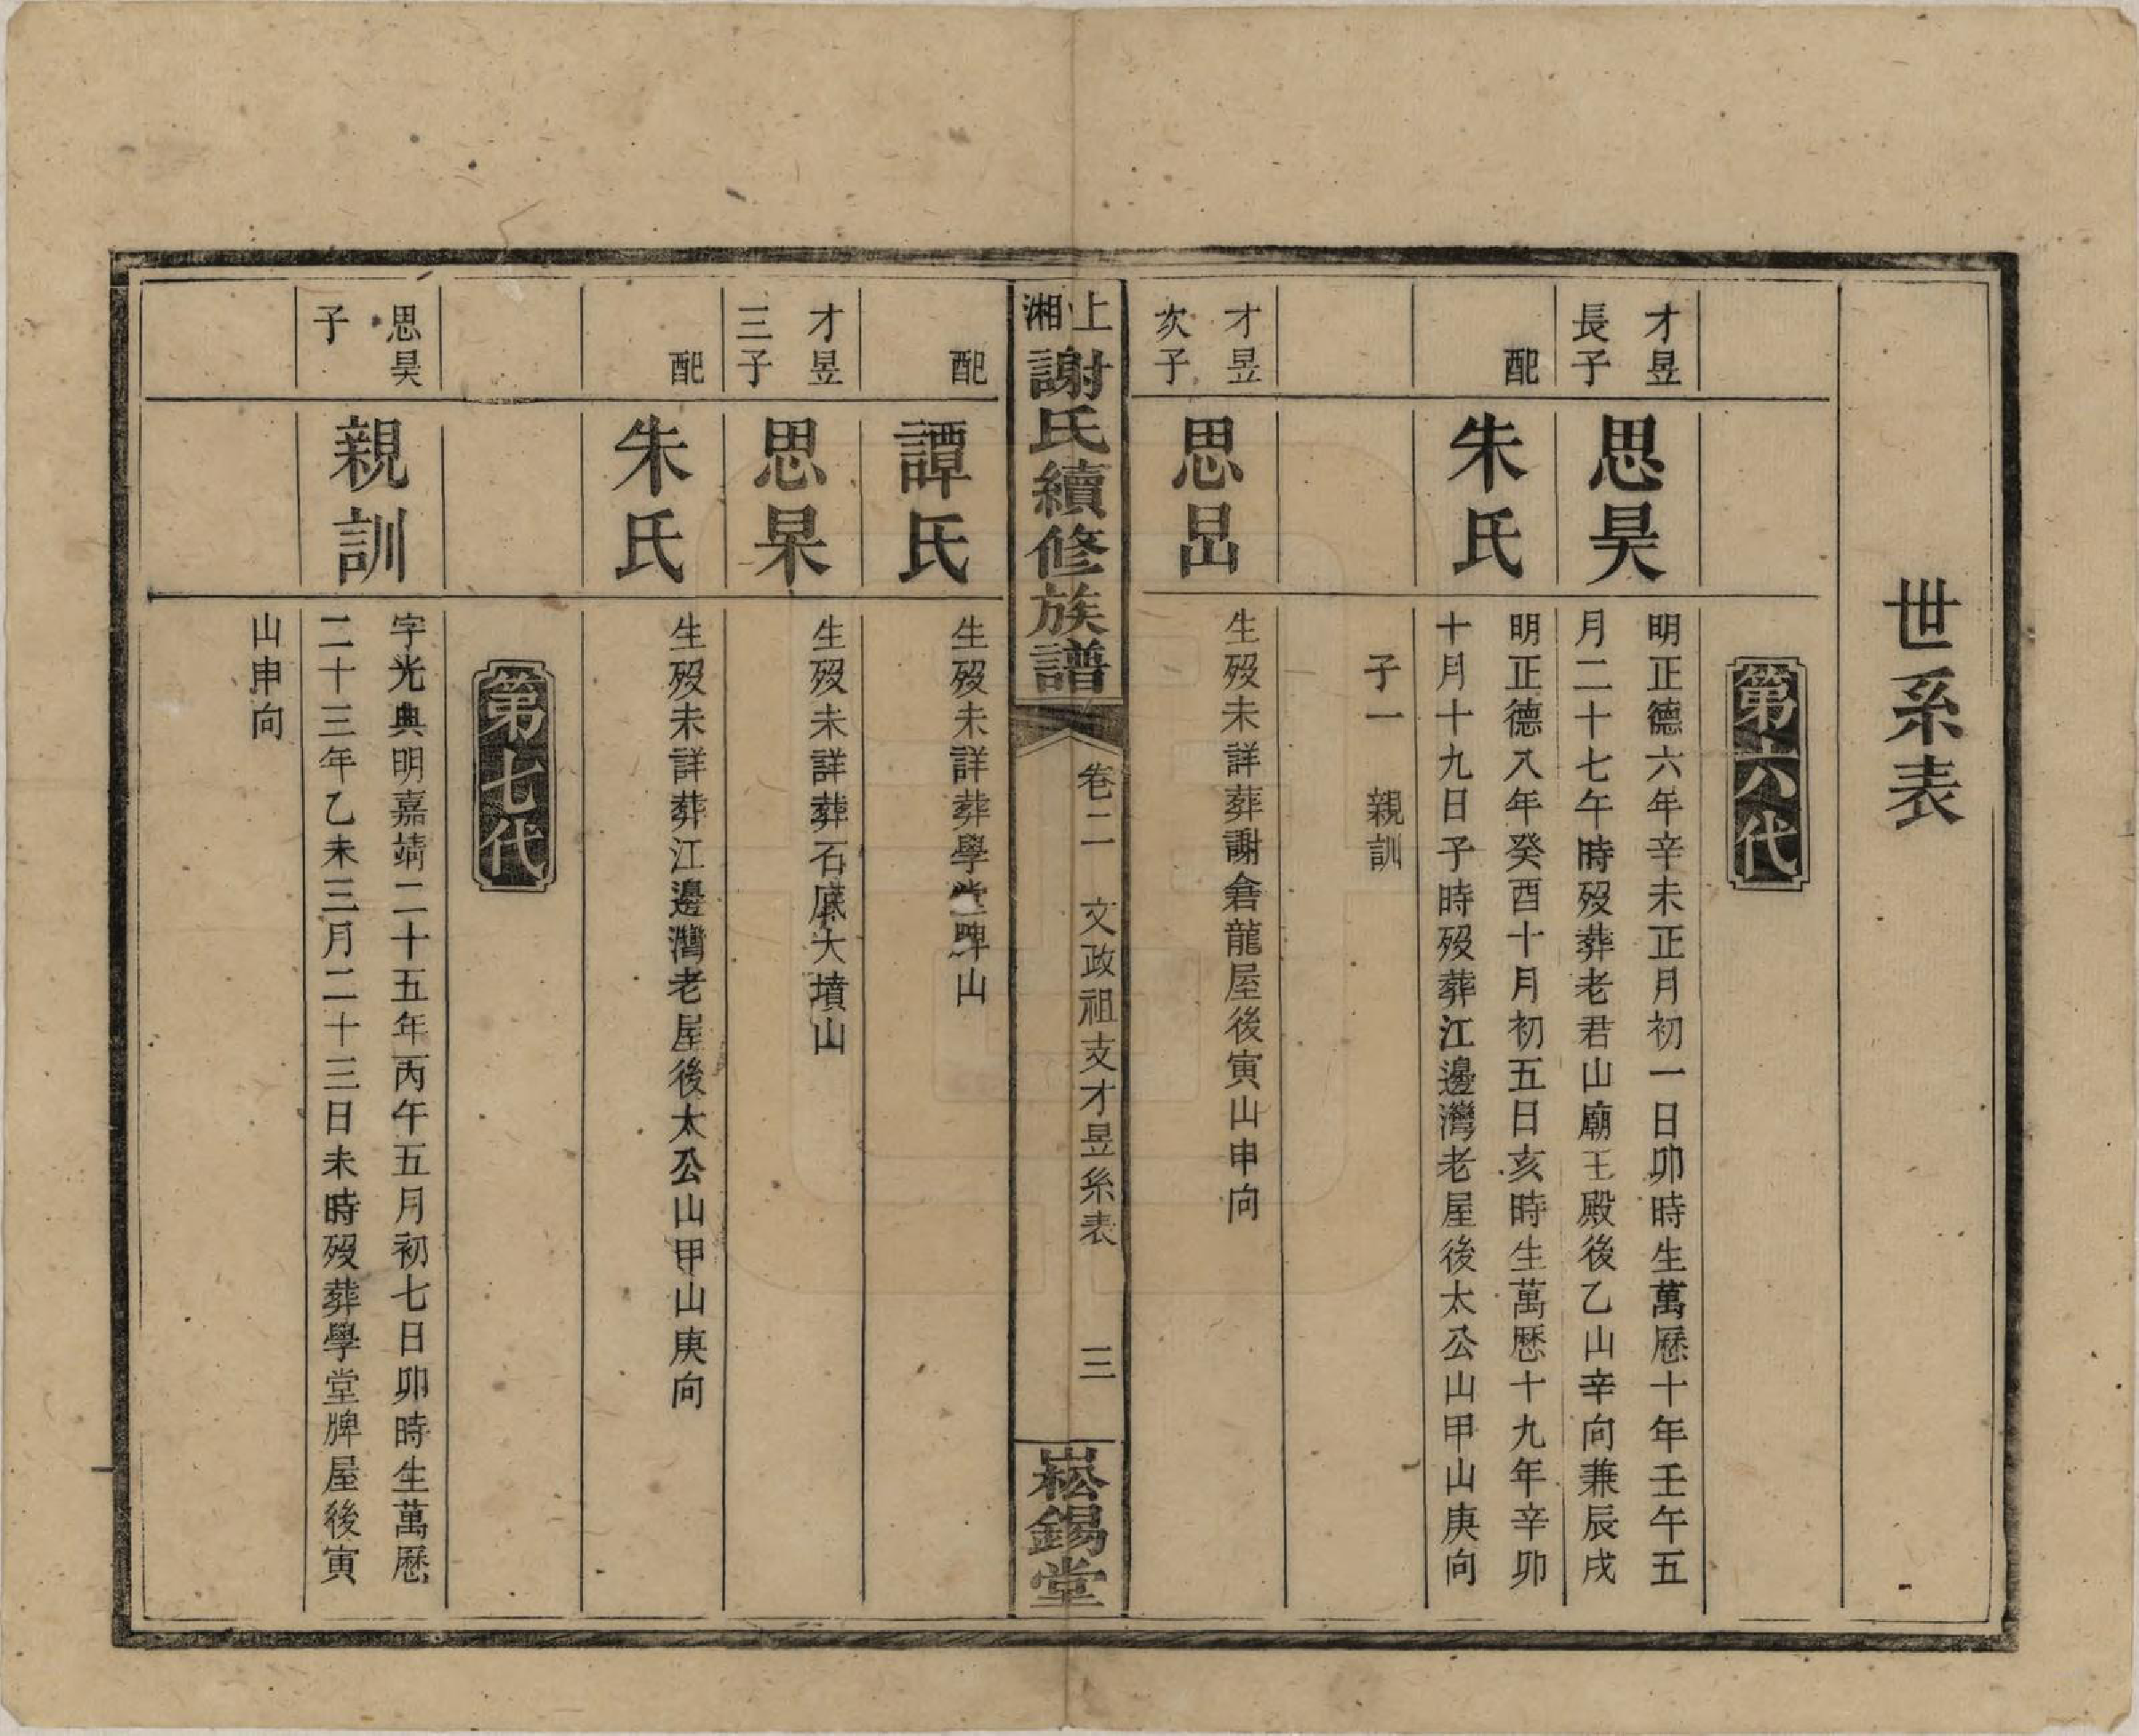 世系表
第六代
才昱
長子
思昊
明正德六年辛未正月初一日卯時生萬歷十年壬午五
月二十七午時歿葬老君山廟王殿後乙山辛向兼辰戌
配
朱氏
明正德八年癸酉十月初五日亥時生萬歷十九年辛卯
十月十九日子時歿葬江邊灣老屋後太公山甲山庚向
子一 親訓
才昱
次子
思旵
生歿未詳葬謝倉龍屋後寅山申向
上湘
謝氏續修族譜
卷二 文政祖支才昱系表 三
崧錫堂
配
譚氏
生歿未詳葬學堂牌山
才昱
三子
思杲
生歿未詳葬石底大墳山
配
朱氏
生歿未詳葬江邊灣老屋後太公山甲山庚向
第七代
思昊
子
親訓
字光典明嘉靖二十五年丙午五月初七日卯時生萬歷
二十三年乙未三月二十三日未時歿葬學堂牌屋後寅
山申向